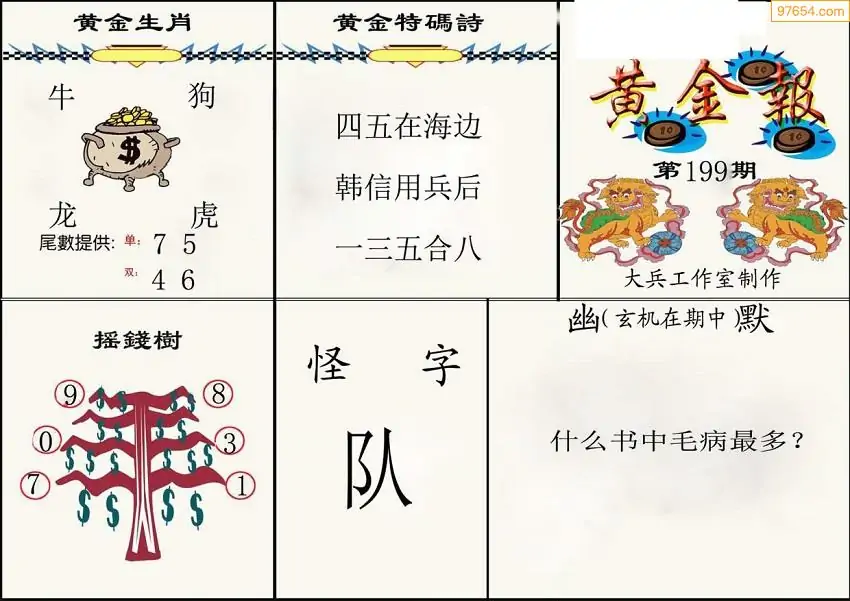 97654.com
黄金生肖
牛 狗
$
龙 虎
尾數提供: 单: 7 5
双: 4 6
黄金特碼詩
四五在海边
韩信用兵后
一三五合八
黄金報
10
10
10
第199期
大兵工作室制作
摇錢樹
9 8
$ $ $ $
$ $ $ $
0 3
$ $ $ $
7 1
$ $ $ $
怪 字
队
幽(玄机在期中)默
什么书中毛病最多?